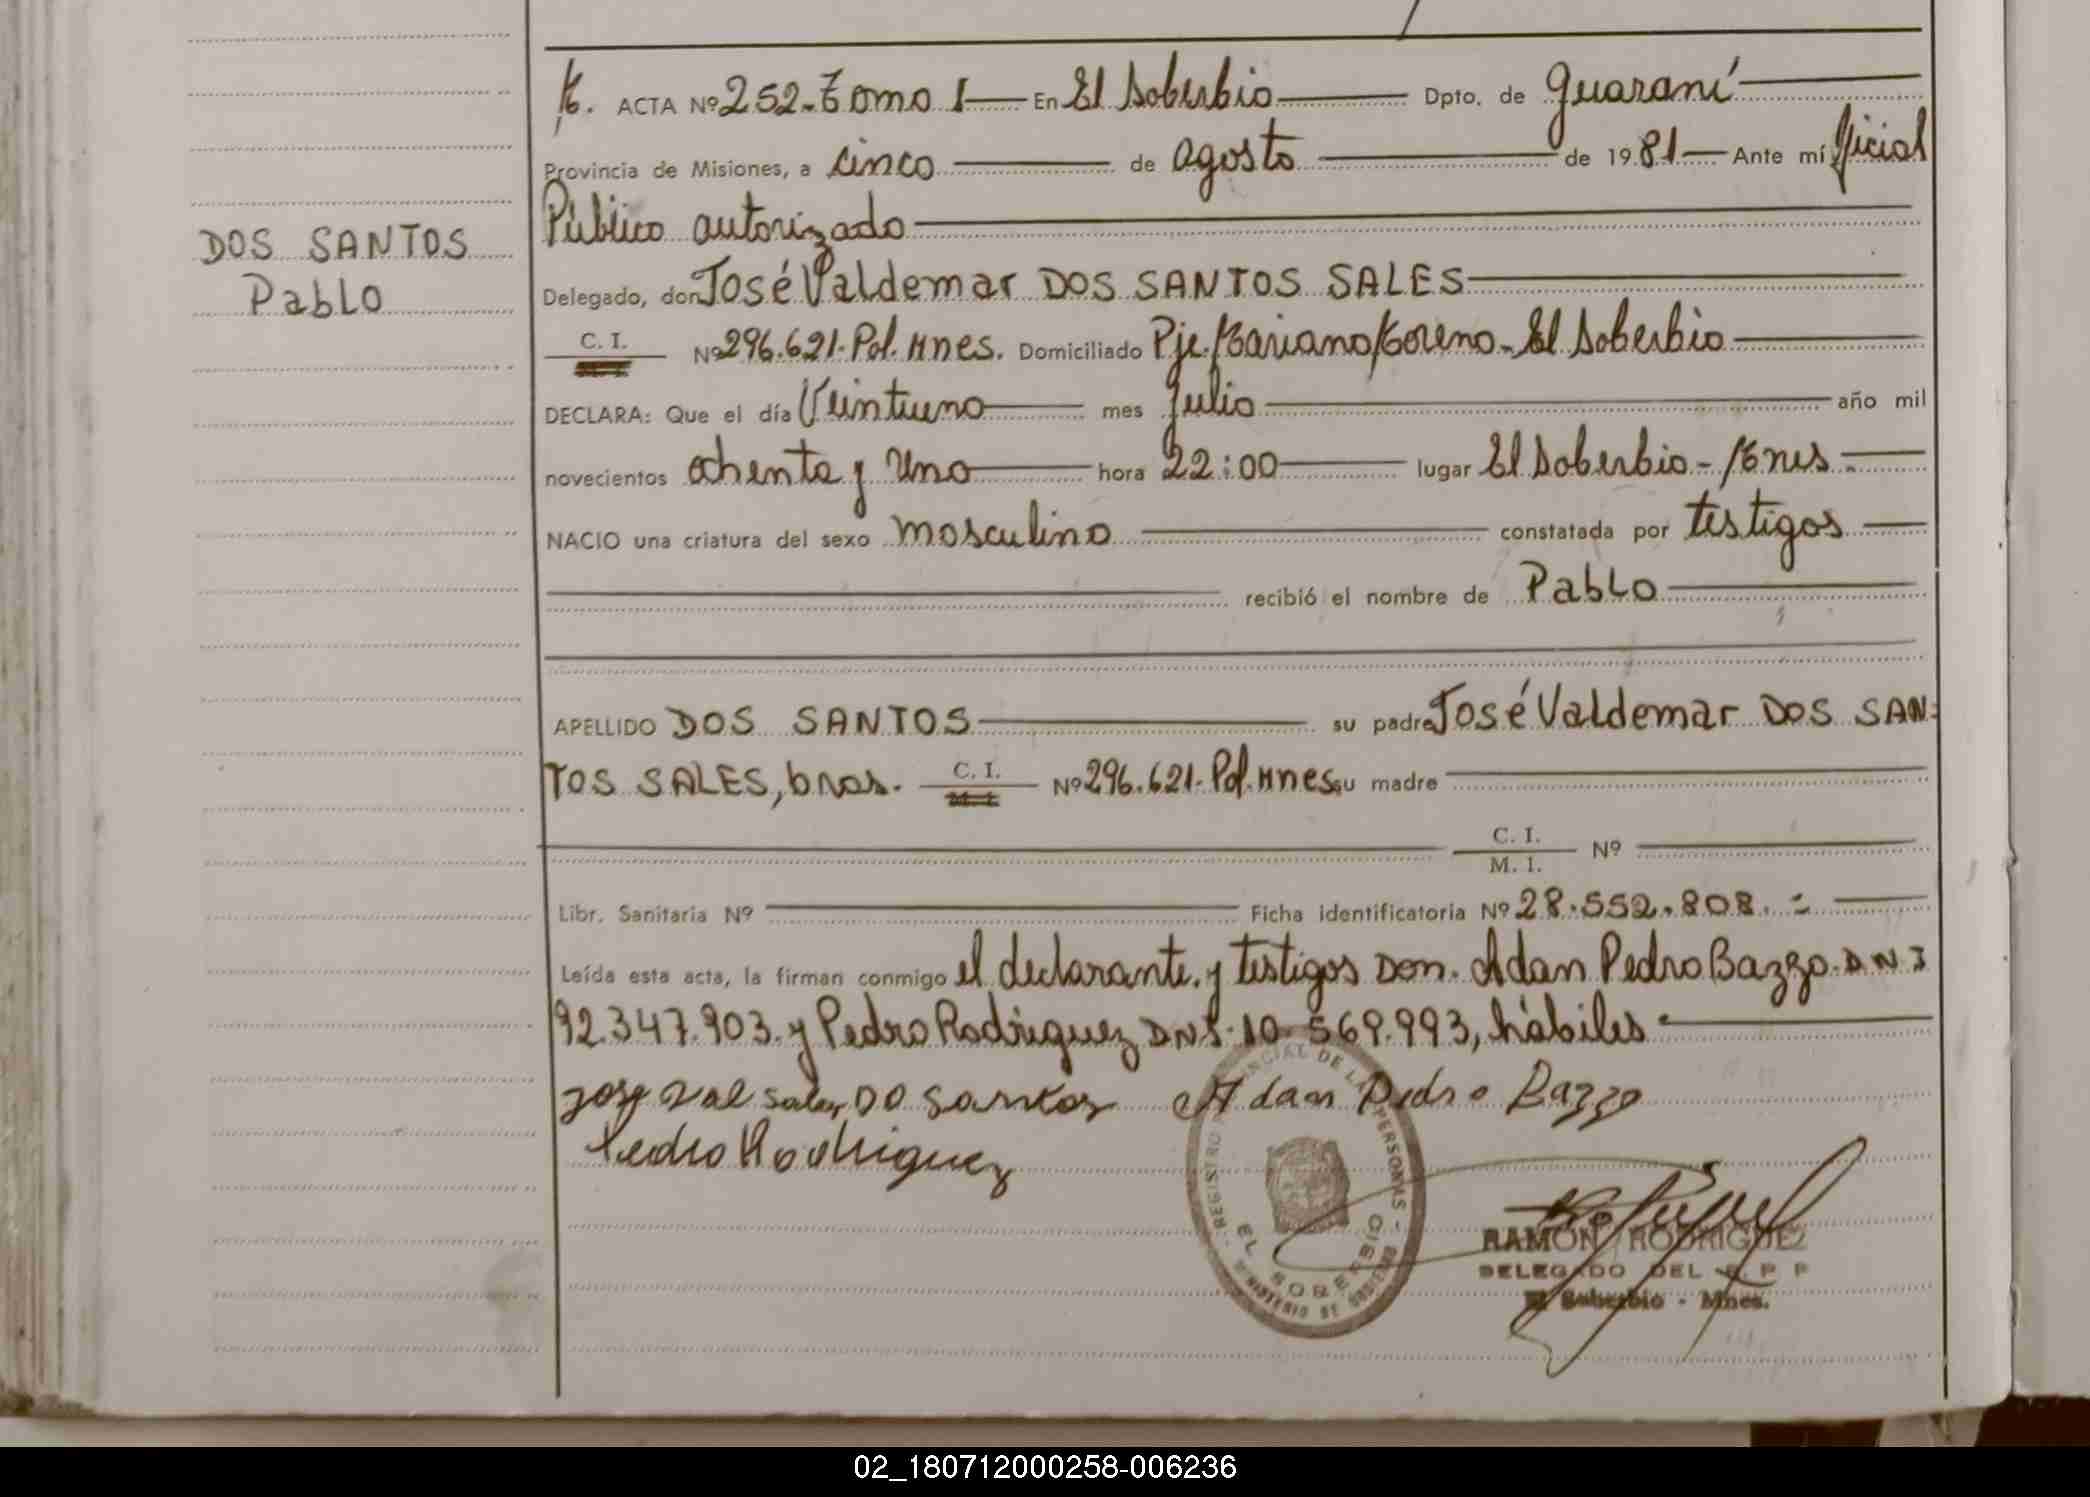 M. ACTA Nº 252-Tomo I En El Soberbio Dpto. de Guaraní
Provincia de Misiones, a cinco de agosto de 1981 Ante mí Oficial
Público autorizado
DOS SANTOS
Pablo
Delegado, don José Valdemar DOS SANTOS SALES
C. I. Nº 296.621-Pol. Mnes. Domiciliado Pje. Mariano Moreno - El Soberbio
DECLARA: Que el día Veintiuno mes Julio año mil
novecientos ochenta y Uno hora 22:00 lugar El Soberbio - Mnes.
NACIO una criatura del sexo masculino constatada por testigos
recibió el nombre de Pablo
APELLIDO DOS SANTOS su padre José Valdemar DOS SAN-
TOS SALES, bras. C. I. M. I. Nº 296.621-Pol. Mnes. su madre
C. I.
M. I. Nº
Libr. Sanitaria Nº Ficha identificatoria Nº 28.552.808. -
Leída esta acta, la firman conmigo el declarante y testigos Don. Adan Pedro Bazzo. D N I
92.347.903. y Pedro Rodriguez D N I. 10 569.993, hábiles
Jose Val Sales DO Santos Adan Pedro Bazzo
Pedro Rodriguez
REGISTRO PROVINCIAL DE LAS PERSONAS
EL SOBERBIO
MINISTERIO DE GOBIERNO
RAMON RODRIGUEZ
DELEGADO DEL R. P P
El Soberbio - Mnes.
02_180712000258-006236